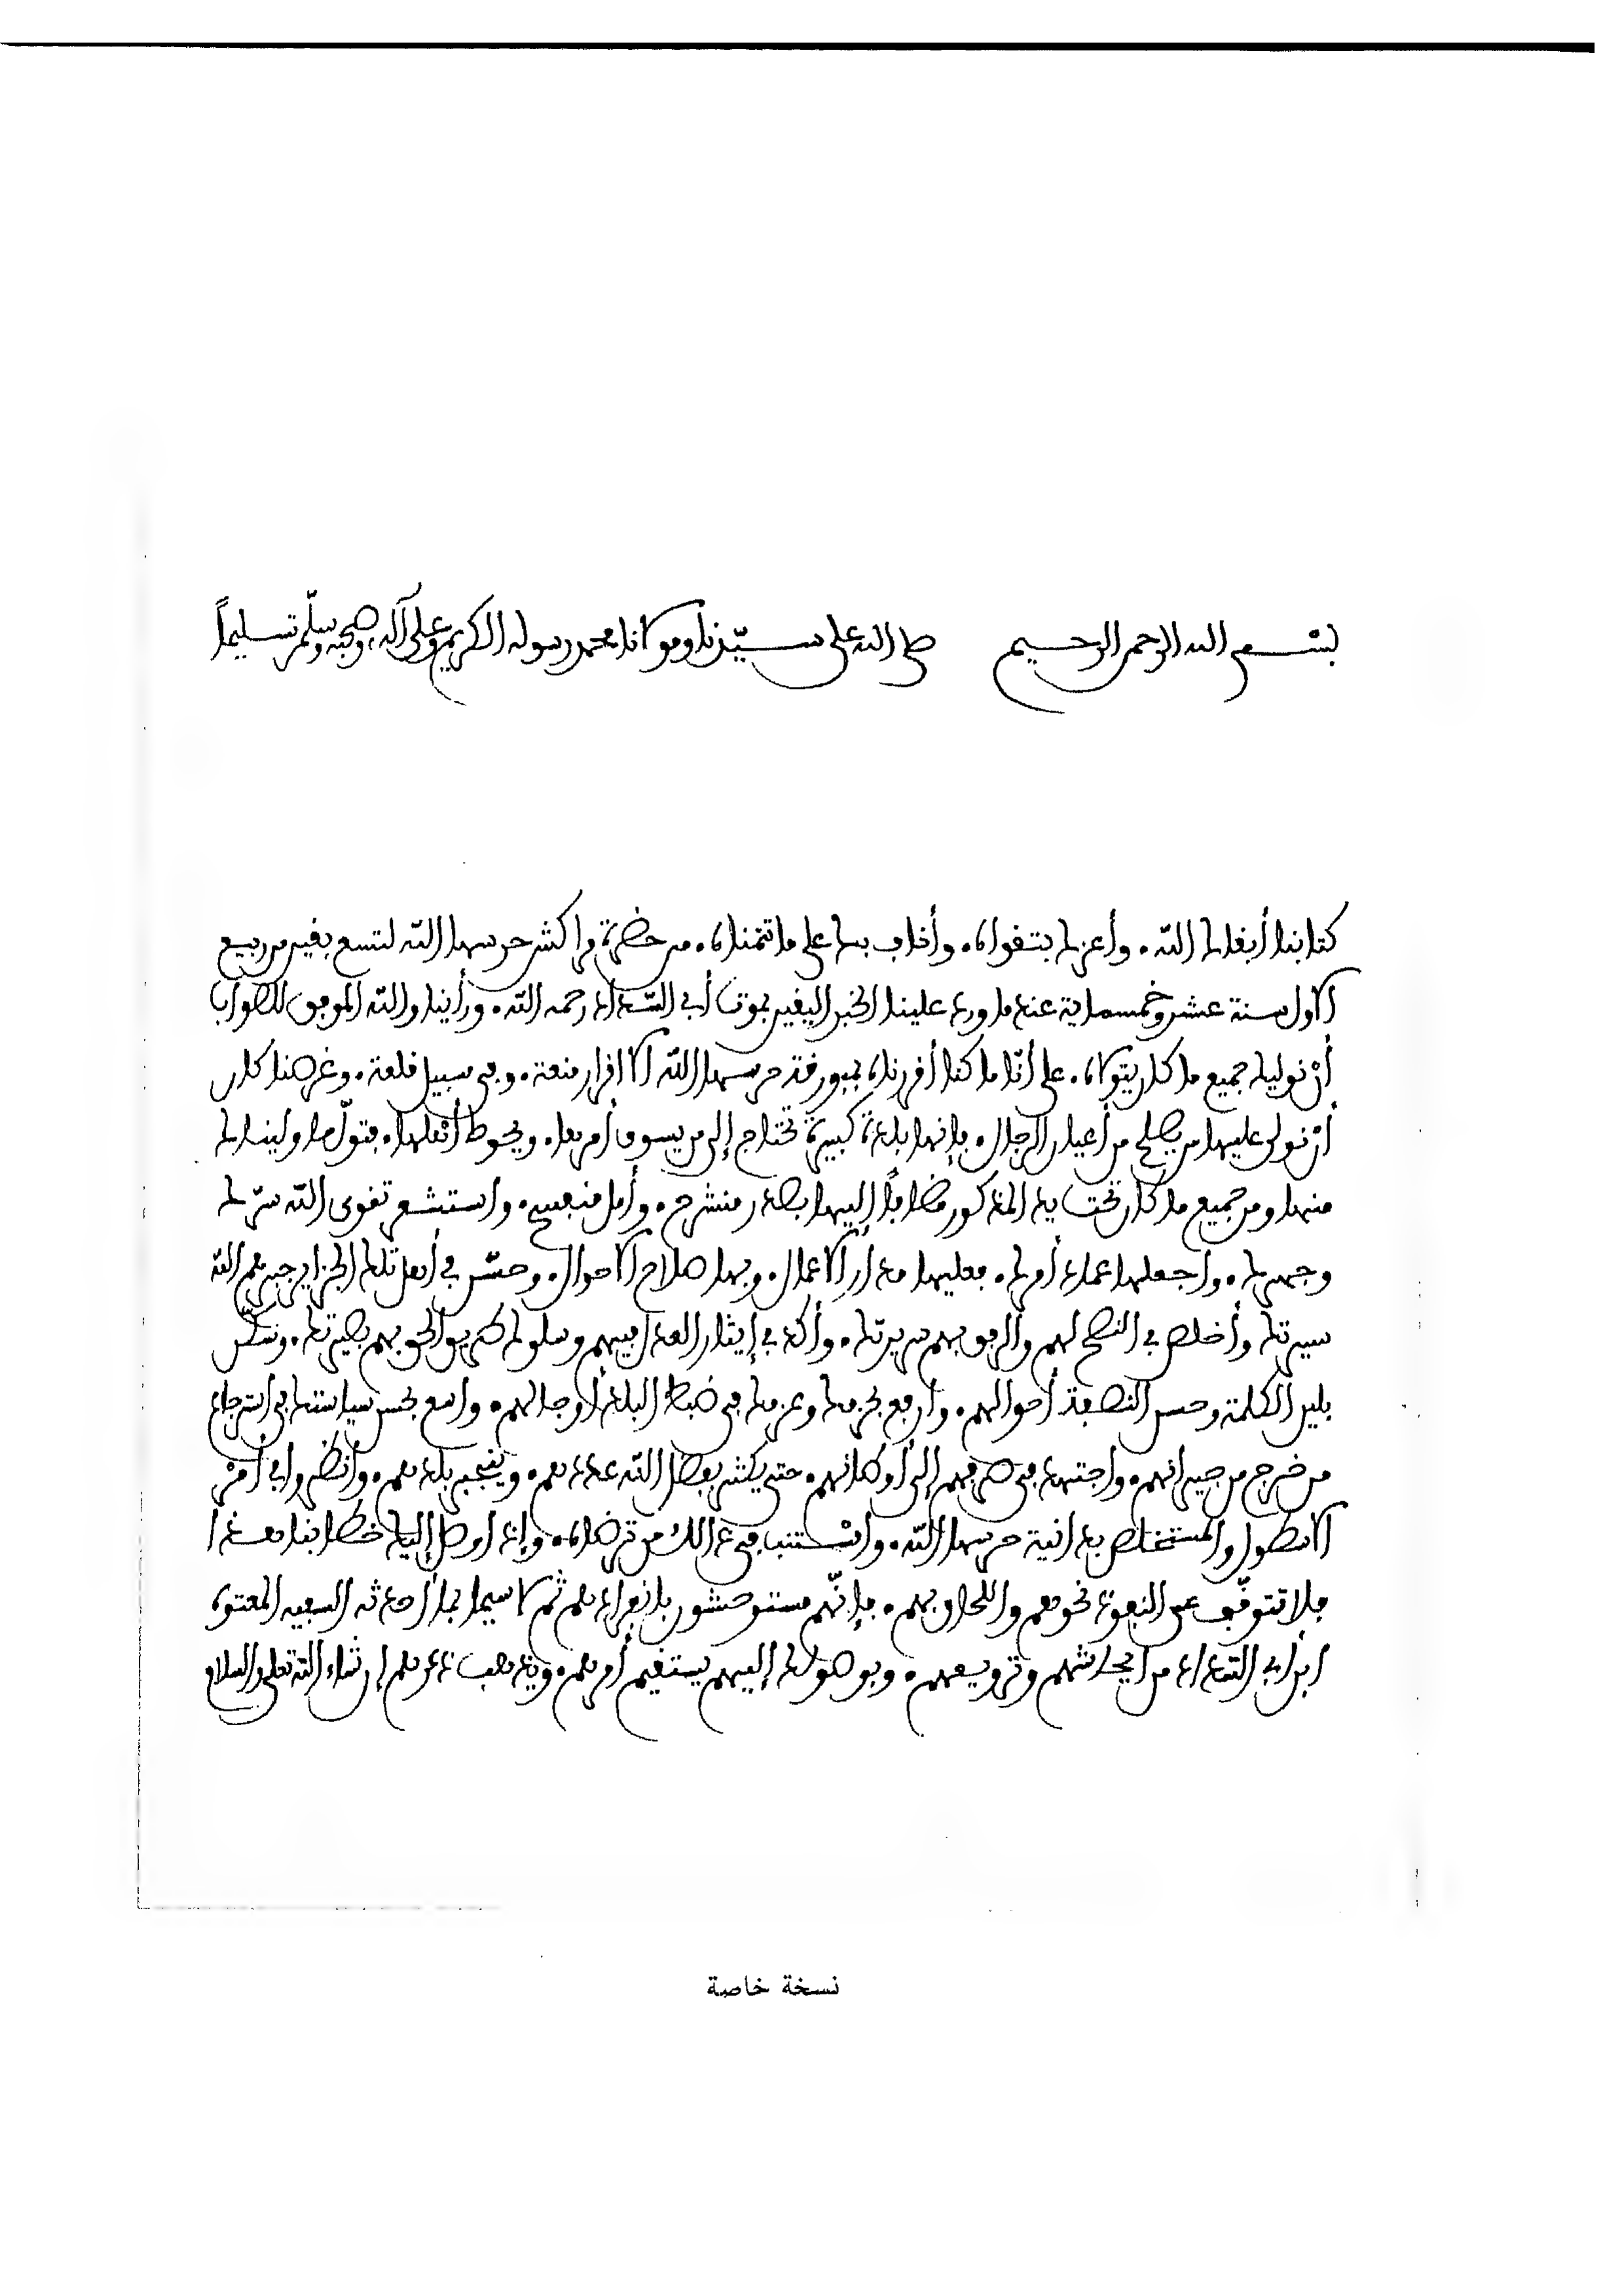 بسم الله الرحمن الرحيم صلى الله على سيّدنا ومولانا محمد رسوله الكريم وعلى آله وصحبه وسلّم تسليماً
كتابنا أبقاك الله، وأعزك بتقواه، وأخلف بك على ما تتمناه، من حضرة مراكش حرسها الله لتسع بقين من ربيع
الأول سنة عشر وخمسماية عندما ورد علينا الخبر اليقين بموت أبي السّداد رحمه الله، ورأينا والله الموفق للصواب
أنْ نوليك جميع ما كان يتولاه، على أنّا ما كنا أفردناه بميورقة حرسها الله إلا إفراد منعة، وفي سبيل قلعة، وغرضنا كان
أنْ نولى عليها من يصلح من أعيان الرجال، فإنها بلدة كبيرة تحتاج إلى من يسوس أمرها، ويحوط أهلها، فتولّ ما وليناك
منها ومن جميع ما كان تحت يد المذكور مضافاً إليها بصدر منشرح، وأمل منفسح، واستشعر تقوى الله سرّك
وجهرك، واجعلها عماد أمرك، فعليها مدار الأعمال، وبها صلاح الأحوال، وحسّن في أهل تلك الجزاير جبرهم الله
سيرتك وأخلص في النصح لهم والرفق بهم سريرتك، وأكد في إيثار العدل فيهم وسلوك طريق الحق بهم بصيرتك، وسكّن
بلين الكلمة وحسن النصفة أحوالهم، وارفع بحزمك وعزمك في ضبط البلد أوجالهم، واسع بحسن سياستك في استرجاع
من خرج من جيرانهم، واجتهد في صرفهم إلى أوطانهم، حتى يكثر بفضل الله عددهم، وينجبر بلدهم، وانظر في أمرْ
الأسطول والمستخلص بدانية حرسها الله، واسْتنب في ذلك من ترضاه، وإذا وصل إليك خطابنا هذا
فلا تتوقّف عن النفوذ نحوهم واللحاق بهم، فإنّهم مستوحشون بانفرادهم ثم لا سيما بما أحدثه السفيه المعتوه
ابن أبي السّداد من إيحاشهم وترويعهم، وبوصولك إليهم يستقيم أمرهم، ويذهب ذعرهم إن شاء الله تعلى والسلام
نسخة خاصة